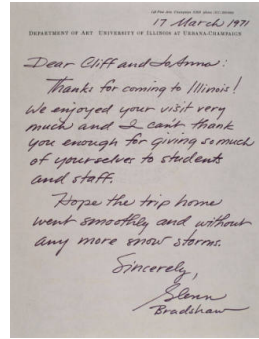 17 March 1971
DEPARTMENT OF ART UNIVERSITY OF ILLINOIS AT URBANA-CHAMPAIGN
Dear Cliff and JoAnna:
Thanks for coming to Illinois!
We enjoyed your visit very
much and I can't thank
you enough for giving so much
of yourselves to students
and staff.
Hope the trip home
went smoothly and without
any more snow storms.
Sincerely,
Glenn
Bradshaw